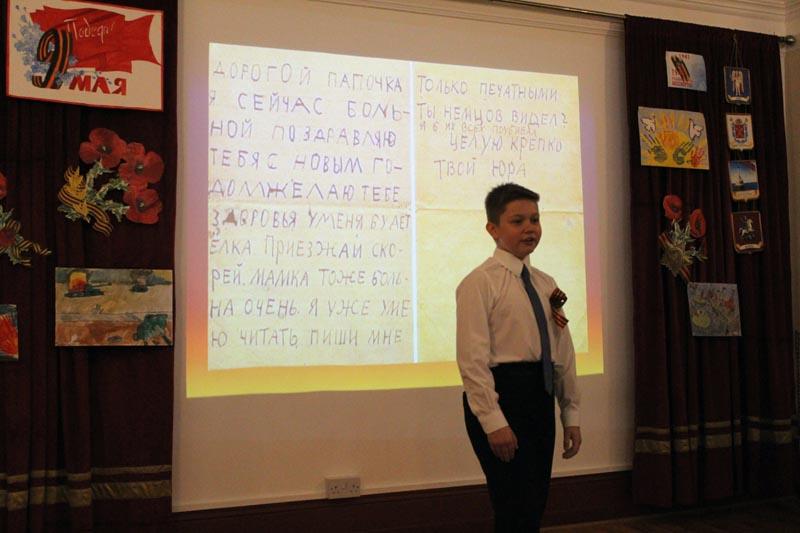 Победа!
9 МАЯ
ДОРОГОЙ ПАПОЧКА
Я СЕЙЧАС БОЛЬ-
НОЙ ПОЗДРАВЛЯЮ
ТЕБЯ С НОВЫМ ГО-
ДОМ ЖЕЛАЮ ТЕБЕ
ЗДОРОВЬЯ У МЕНЯ БУДЕТ
ЁЛКА ПРИЕЗЖАЙ СКО-
РЕЙ. МАМКА ТОЖЕ БОЛЬ-
НА ОЧЕНЬ. Я УЖЕ УМЕ-
Ю ЧИТАТЬ, ПИШИ МНЕ
ТОЛЬКО ПЕЧАТНЫМИ
ТЫ НЕМЦОВ ВИДЕЛ?
Я Б ИХ ВСЕХ ПОУБИВАЛ
ЦЕЛУЮ КРЕПКО
ТВОЙ ЮРА
1941